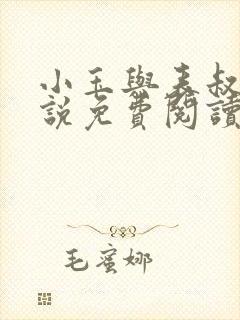 小玉與表叔
說免費閱讀
毛蜜娜